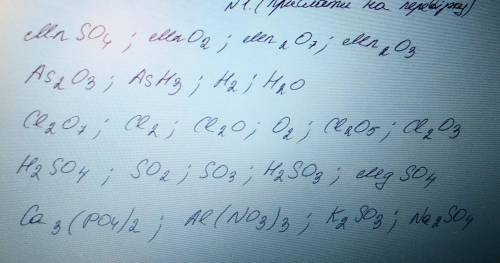 №1. (прислати на перевірку)
MnSO4 ; MnO2 ; Mn2O7 ; Mn2O3
As2O3 ; AsH3 ; H2 ; H2O
Cl2O7 ; Cl2 ; Cl2O ; O2 ; Cl2O5 ; Cl2O3
H2SO4 ; SO2 ; SO3 ; H2SO3 ; MgSO4
Ca3(PO4)2 ; Al(NO3)3 ; K2SO3 ; Na2SO4